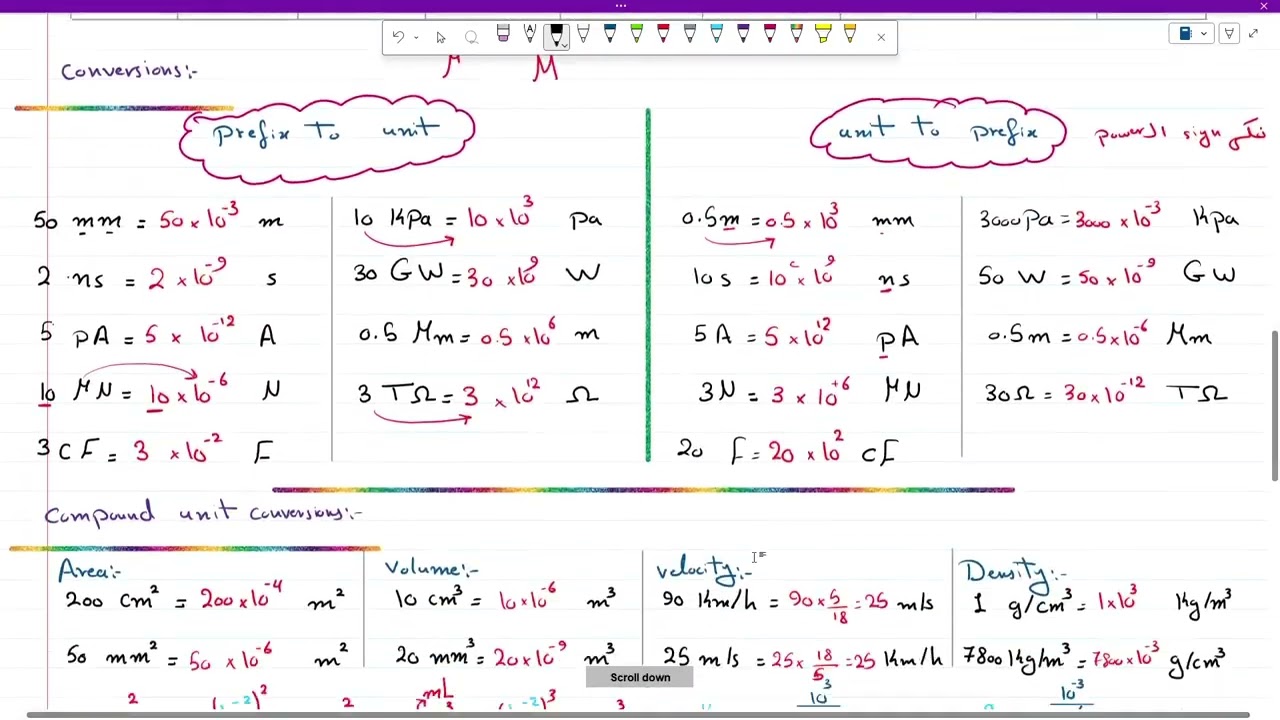 Conversions:-
μ M
Prefix To unit
unit to prefix
power ال sign نعكس
50 mm = 50 × 10⁻³ m
2 ns = 2 × 10⁻⁹ s
5 pA = 5 × 10⁻¹² A
10 μN = 10 × 10⁻⁶ N
3 cF = 3 × 10⁻² F
10 KPa = 10 × 10³ pa
30 GW = 30 × 10⁹ W
0.5 Mm = 0.5 × 10⁶ m
3 TΩ = 3 × 10¹² Ω
0.5 m = 0.5 × 10³ mm
10 s = 10 × 10⁹ ns
5 A = 5 × 10¹² pA
3 N = 3 × 10⁺⁶ μN
20 F = 20 × 10² cF
3000 Pa = 3000 × 10⁻³ Kpa
50 W = 50 × 10⁻⁹ GW
0.5 m = 0.5 × 10⁻⁶ Mm
30 Ω = 30 × 10⁻¹² TΩ
Compound unit conversions:-
Area:-
200 cm² = 200 × 10⁻⁴ m²
50 mm² = 50 × 10⁻⁶ m²
Volume:-
10 cm³ = 10 × 10⁻⁶ m³
20 mm³ = 20 × 10⁻⁹ m³
mL
Velocity:-
90 Km/h = 90 × 5/18 = 25 m/s
25 m/s = 25 × 18/5 = 25 Km/h
10³
Density:-
1 g/cm³ = 1 × 10³ Kg/m³
7800 Kg/m³ = 7800 × 10⁻³ g/cm³
10⁻³
Scroll down